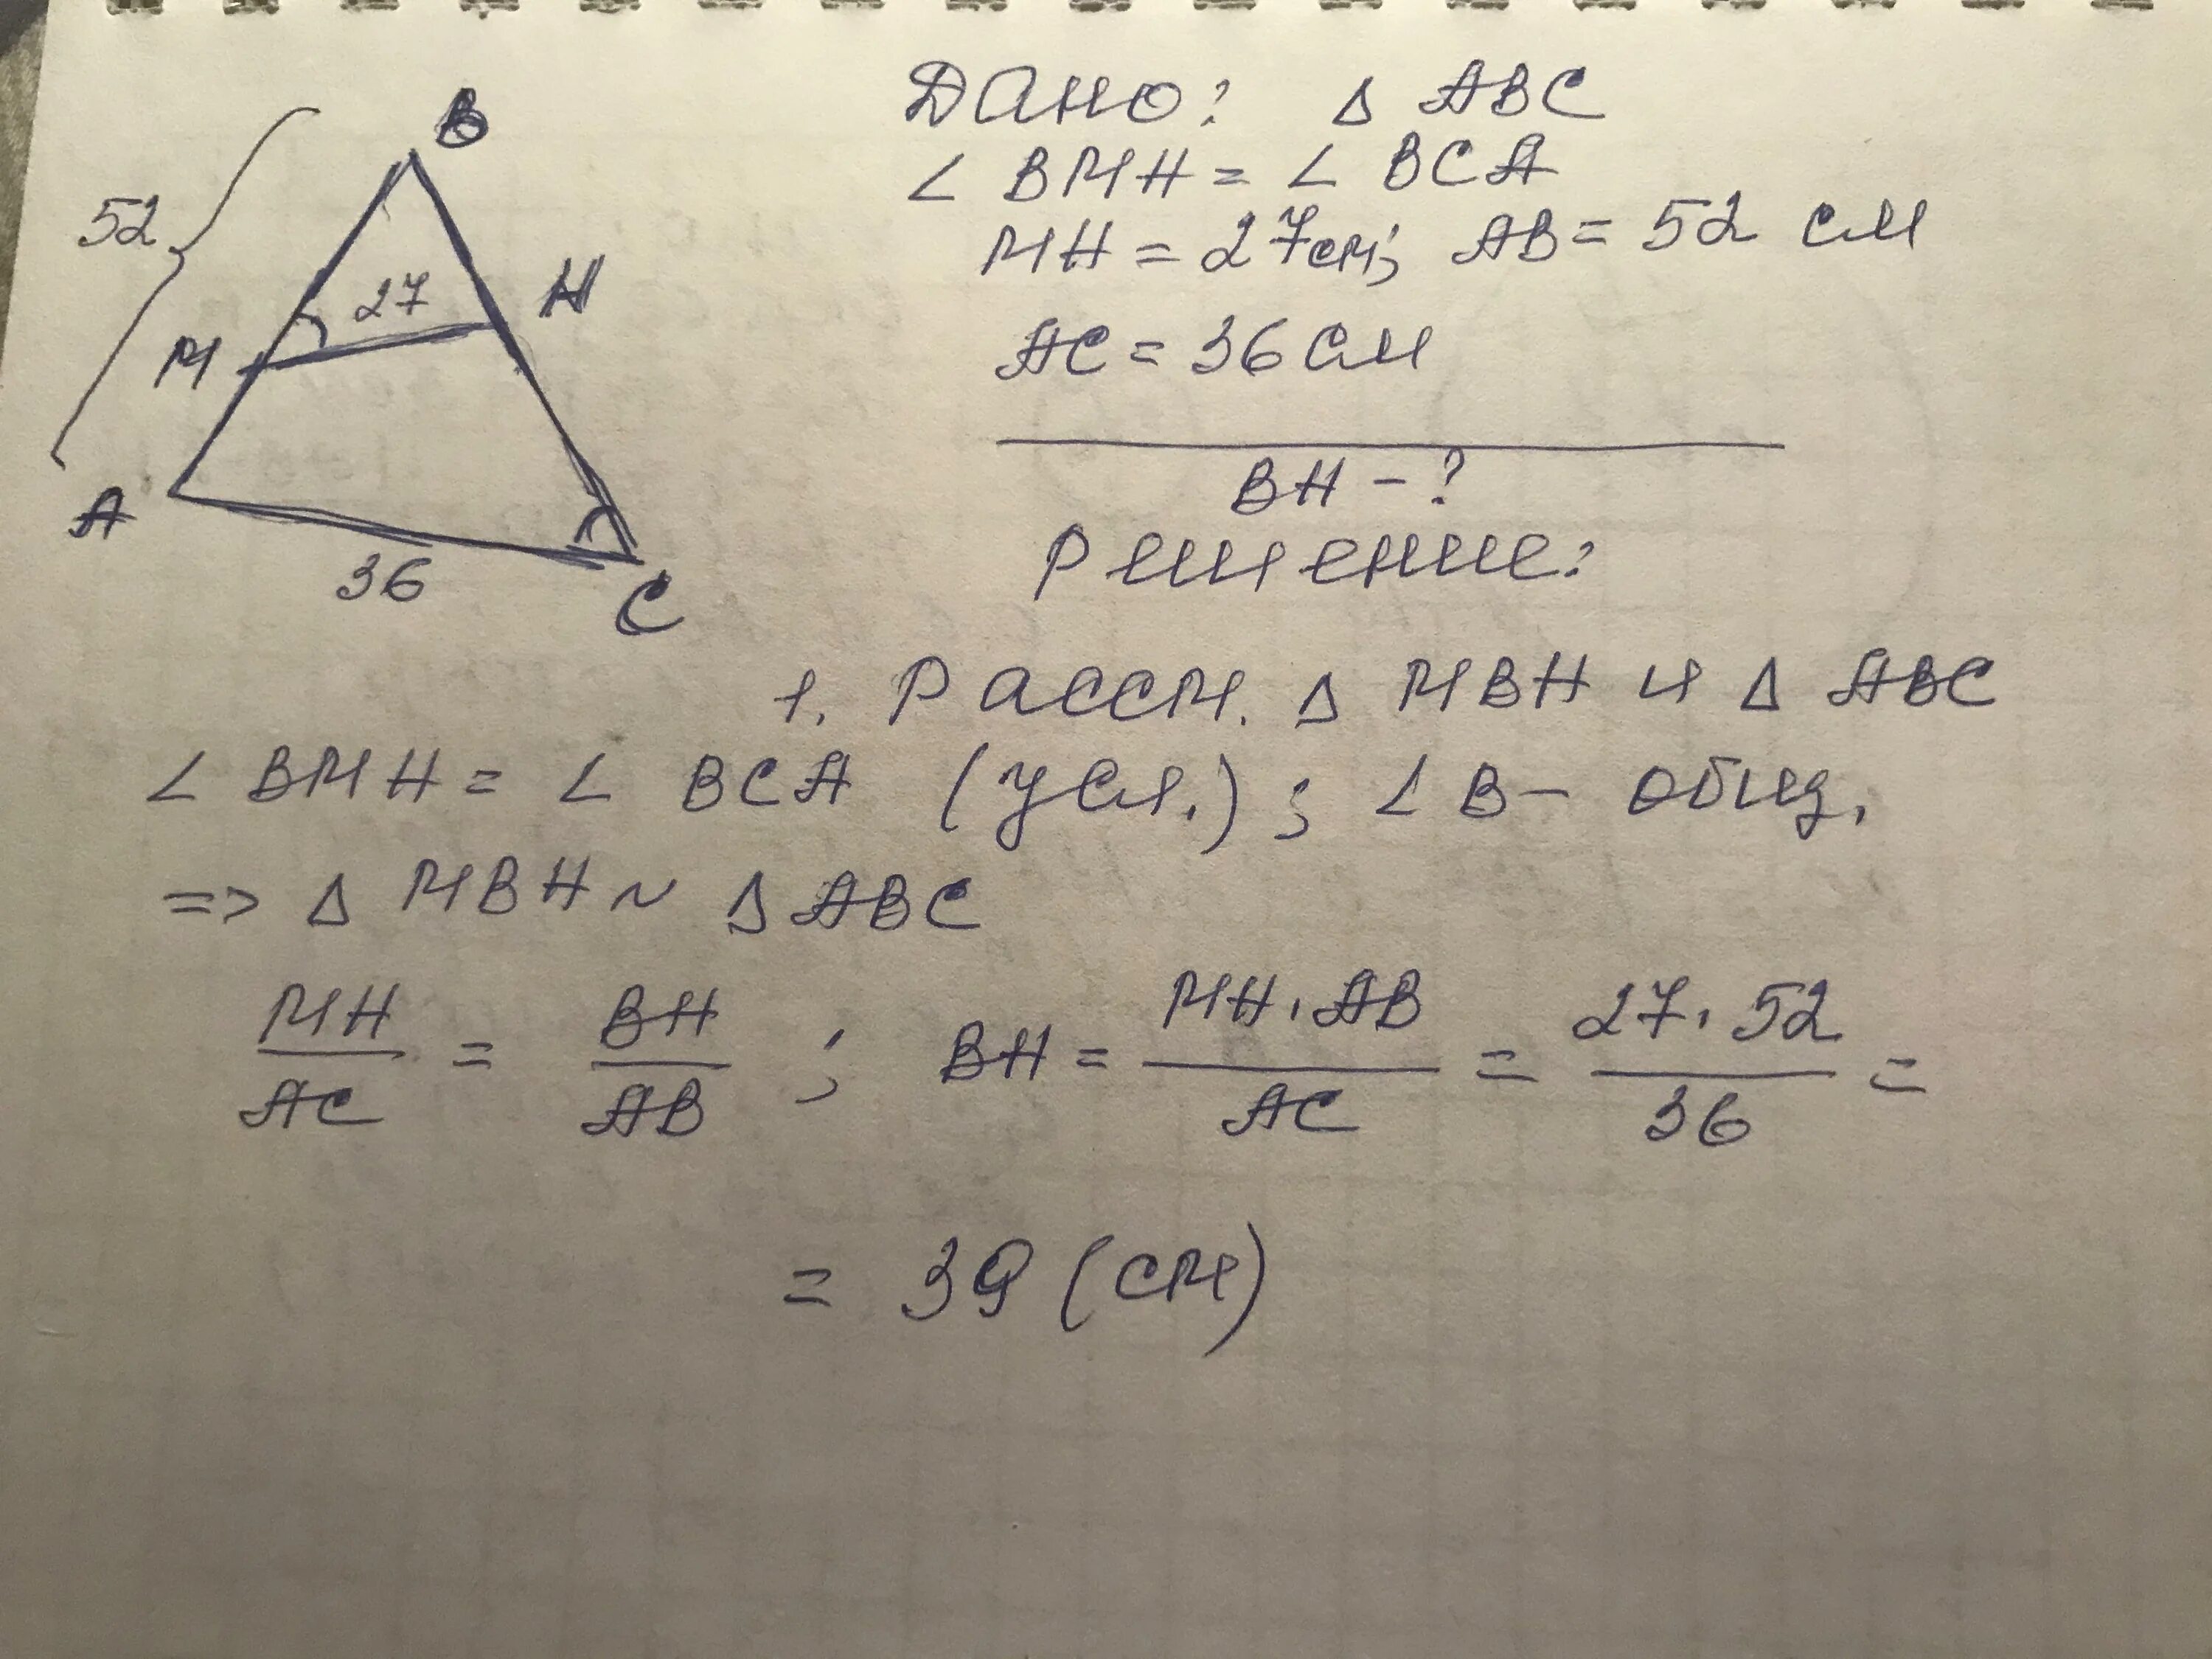 B
52
27
H
M
A
36
C
Дано: Δ ABC
∠ BMH = ∠ BCA
MH = 27см; AB = 52 см
AC = 36 см
BH - ?
Решение:
1. Рассм. Δ MBH и Δ ABC
∠ BMH = ∠ BCA (усл.); ∠ B - общ.
=> Δ MBH ~ Δ ABC
MH/AC = BH/AB ; BH = MH · AB/AC = 27 · 52/36 =
= 39 (см)